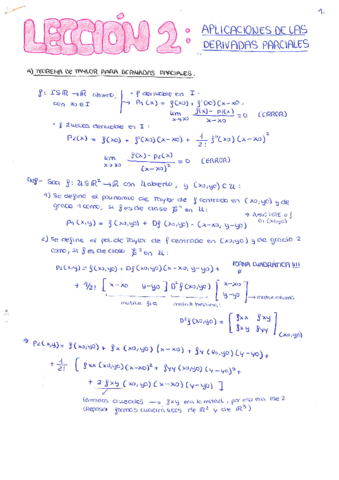 1
LECCIÓN 2: APLICACIONES DE LAS
DERIVADAS PARCIALES
A) TEOREMA DE TAYLOR PARA DERIVADAS PARCIALES:
f: I⊆ℝ → ℝ abierto, • f derivable en I:
con x0 ∈ I → P1(x) = f(x0) + f'(x0)(x-x0).
lim x→x0 (f(x) - p1(x))/(x-x0) = 0 (ERROR)
• f 2 veces derivable en I:
P2(x) = f(x0) + f'(x0)(x-x0) + 1/2! f''(x0)(x-x0)²
lim x→x0 (f(x) - p2(x))/(x-x0)² = 0 (ERROR)
Def- Sea f: U⊆ℝ² → ℝ con U abierto, y (x0,y0) ∈ U:
1) Se define el polinomio de Taylor de f centrado en (x0,y0) y de
grado 1 como, si f es de clase C¹ en U:
P1(x,y) = f(x0,y0) + Df(x0,y0)·(x-x0, y-y0)
2) Se define el pol. de Taylor de f centrado en (x0,y0) y de grado 2
como, si f es de clase C² en U:
P2(x,y) = f(x0,y0) + Df(x0,y0)(x-x0, y-y0) + FORMA CUADRÁTICA !!!
+ 1/2! [x-x0 y-y0] D²f(x0,y0) [x-x0
y-y0] → matriz columna
matriz fila matriz hessiana
D²f(x0,y0) = [fxx fxy
fxy fyy] (x0,y0)
⇒ P2(x,y) = f(x0,y0) + fx(x0,y0)(x-x0) + fy(x0,y0)(y-y0) +
+ 1/2! [fxx(x0,y0)(x-x0)² + fyy(x0,y0)(y-y0)² +
+ 2 fxy(x0,y0)(x-x0)(y-y0)]
términos cruzados → fxy era la mitad, por eso ese 2
(Repasar formas cuadráticas de ℝ² y de ℝ³)